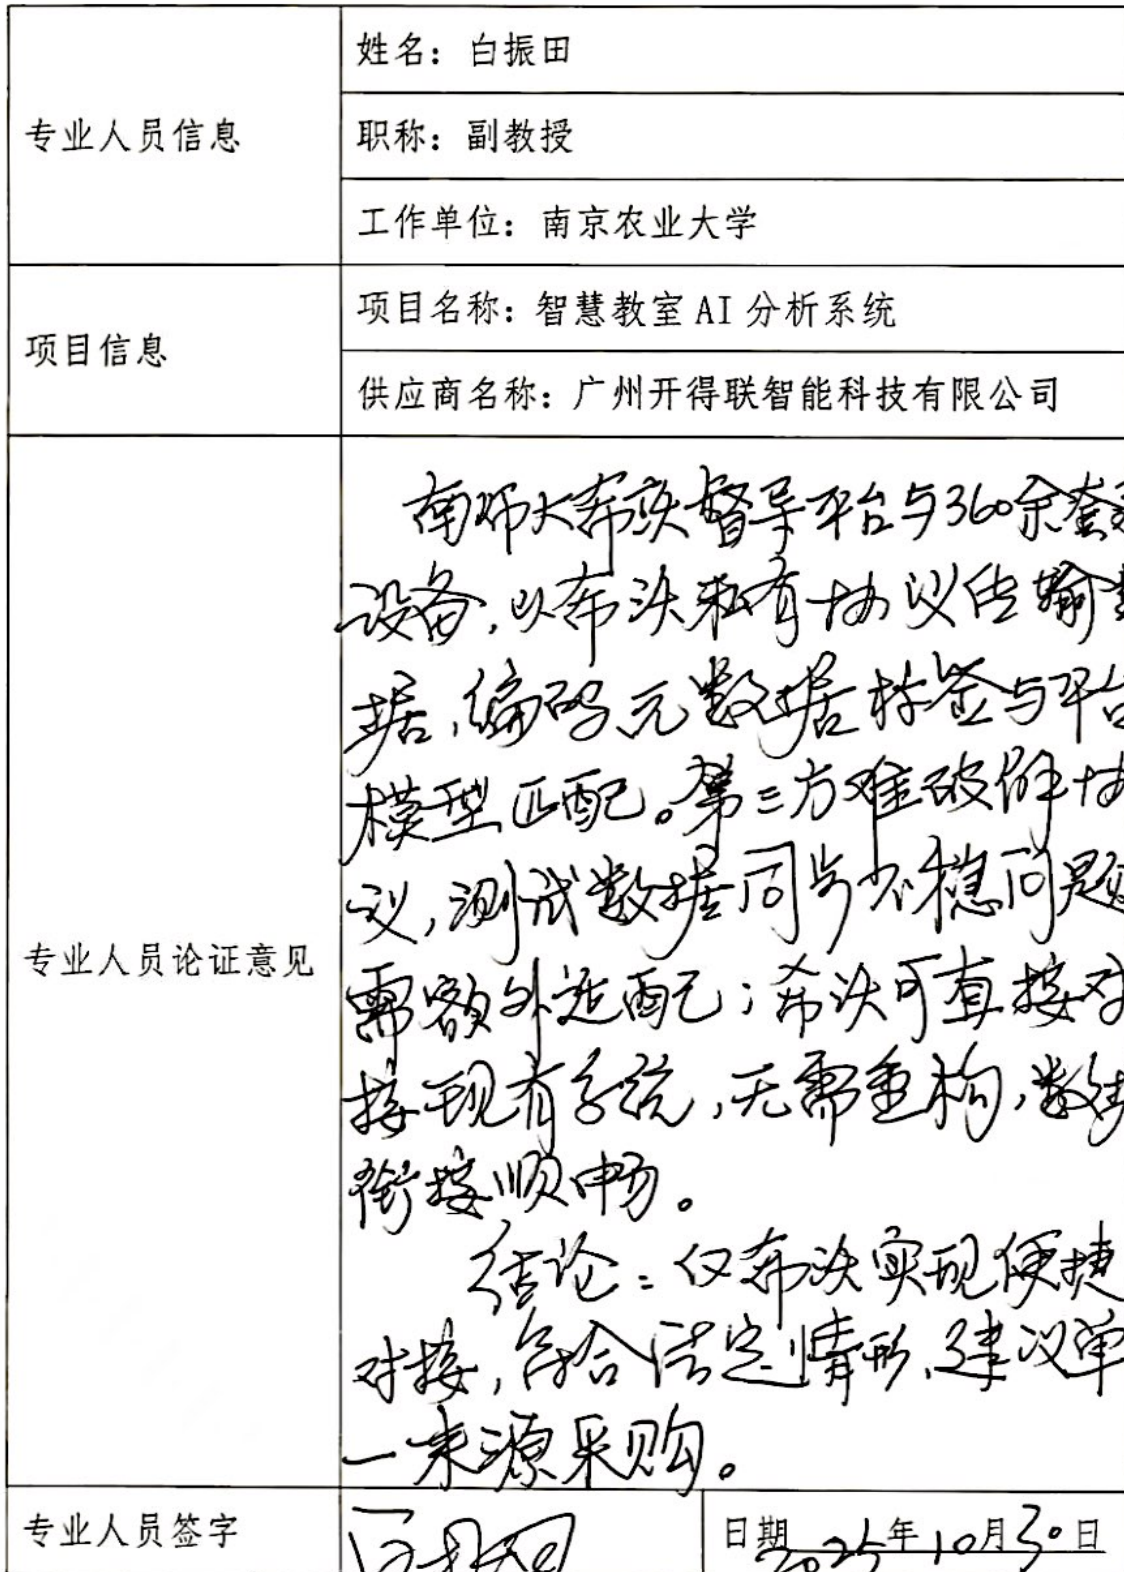 专业人员信息
姓名：白振田
职称：副教授
工作单位：南京农业大学
项目信息
项目名称：智慧教室 AI 分析系统
供应商名称：广州开得联智能科技有限公司
专业人员论证意见
南师大希沃督导平台与360余套
设备，以希沃私有协议传输
据，编码元数据标签与平台
模型匹配。第三方难破解协
议，测试数据同步不稳问题
需额外适配；希沃可直接对
接现有系统，无需重构，数据
衔接顺畅。
结论：仅希沃实现便捷
对接，符合法定情形，建议单
一来源采购。
专业人员签字
白振田
日期 2025年10月30日